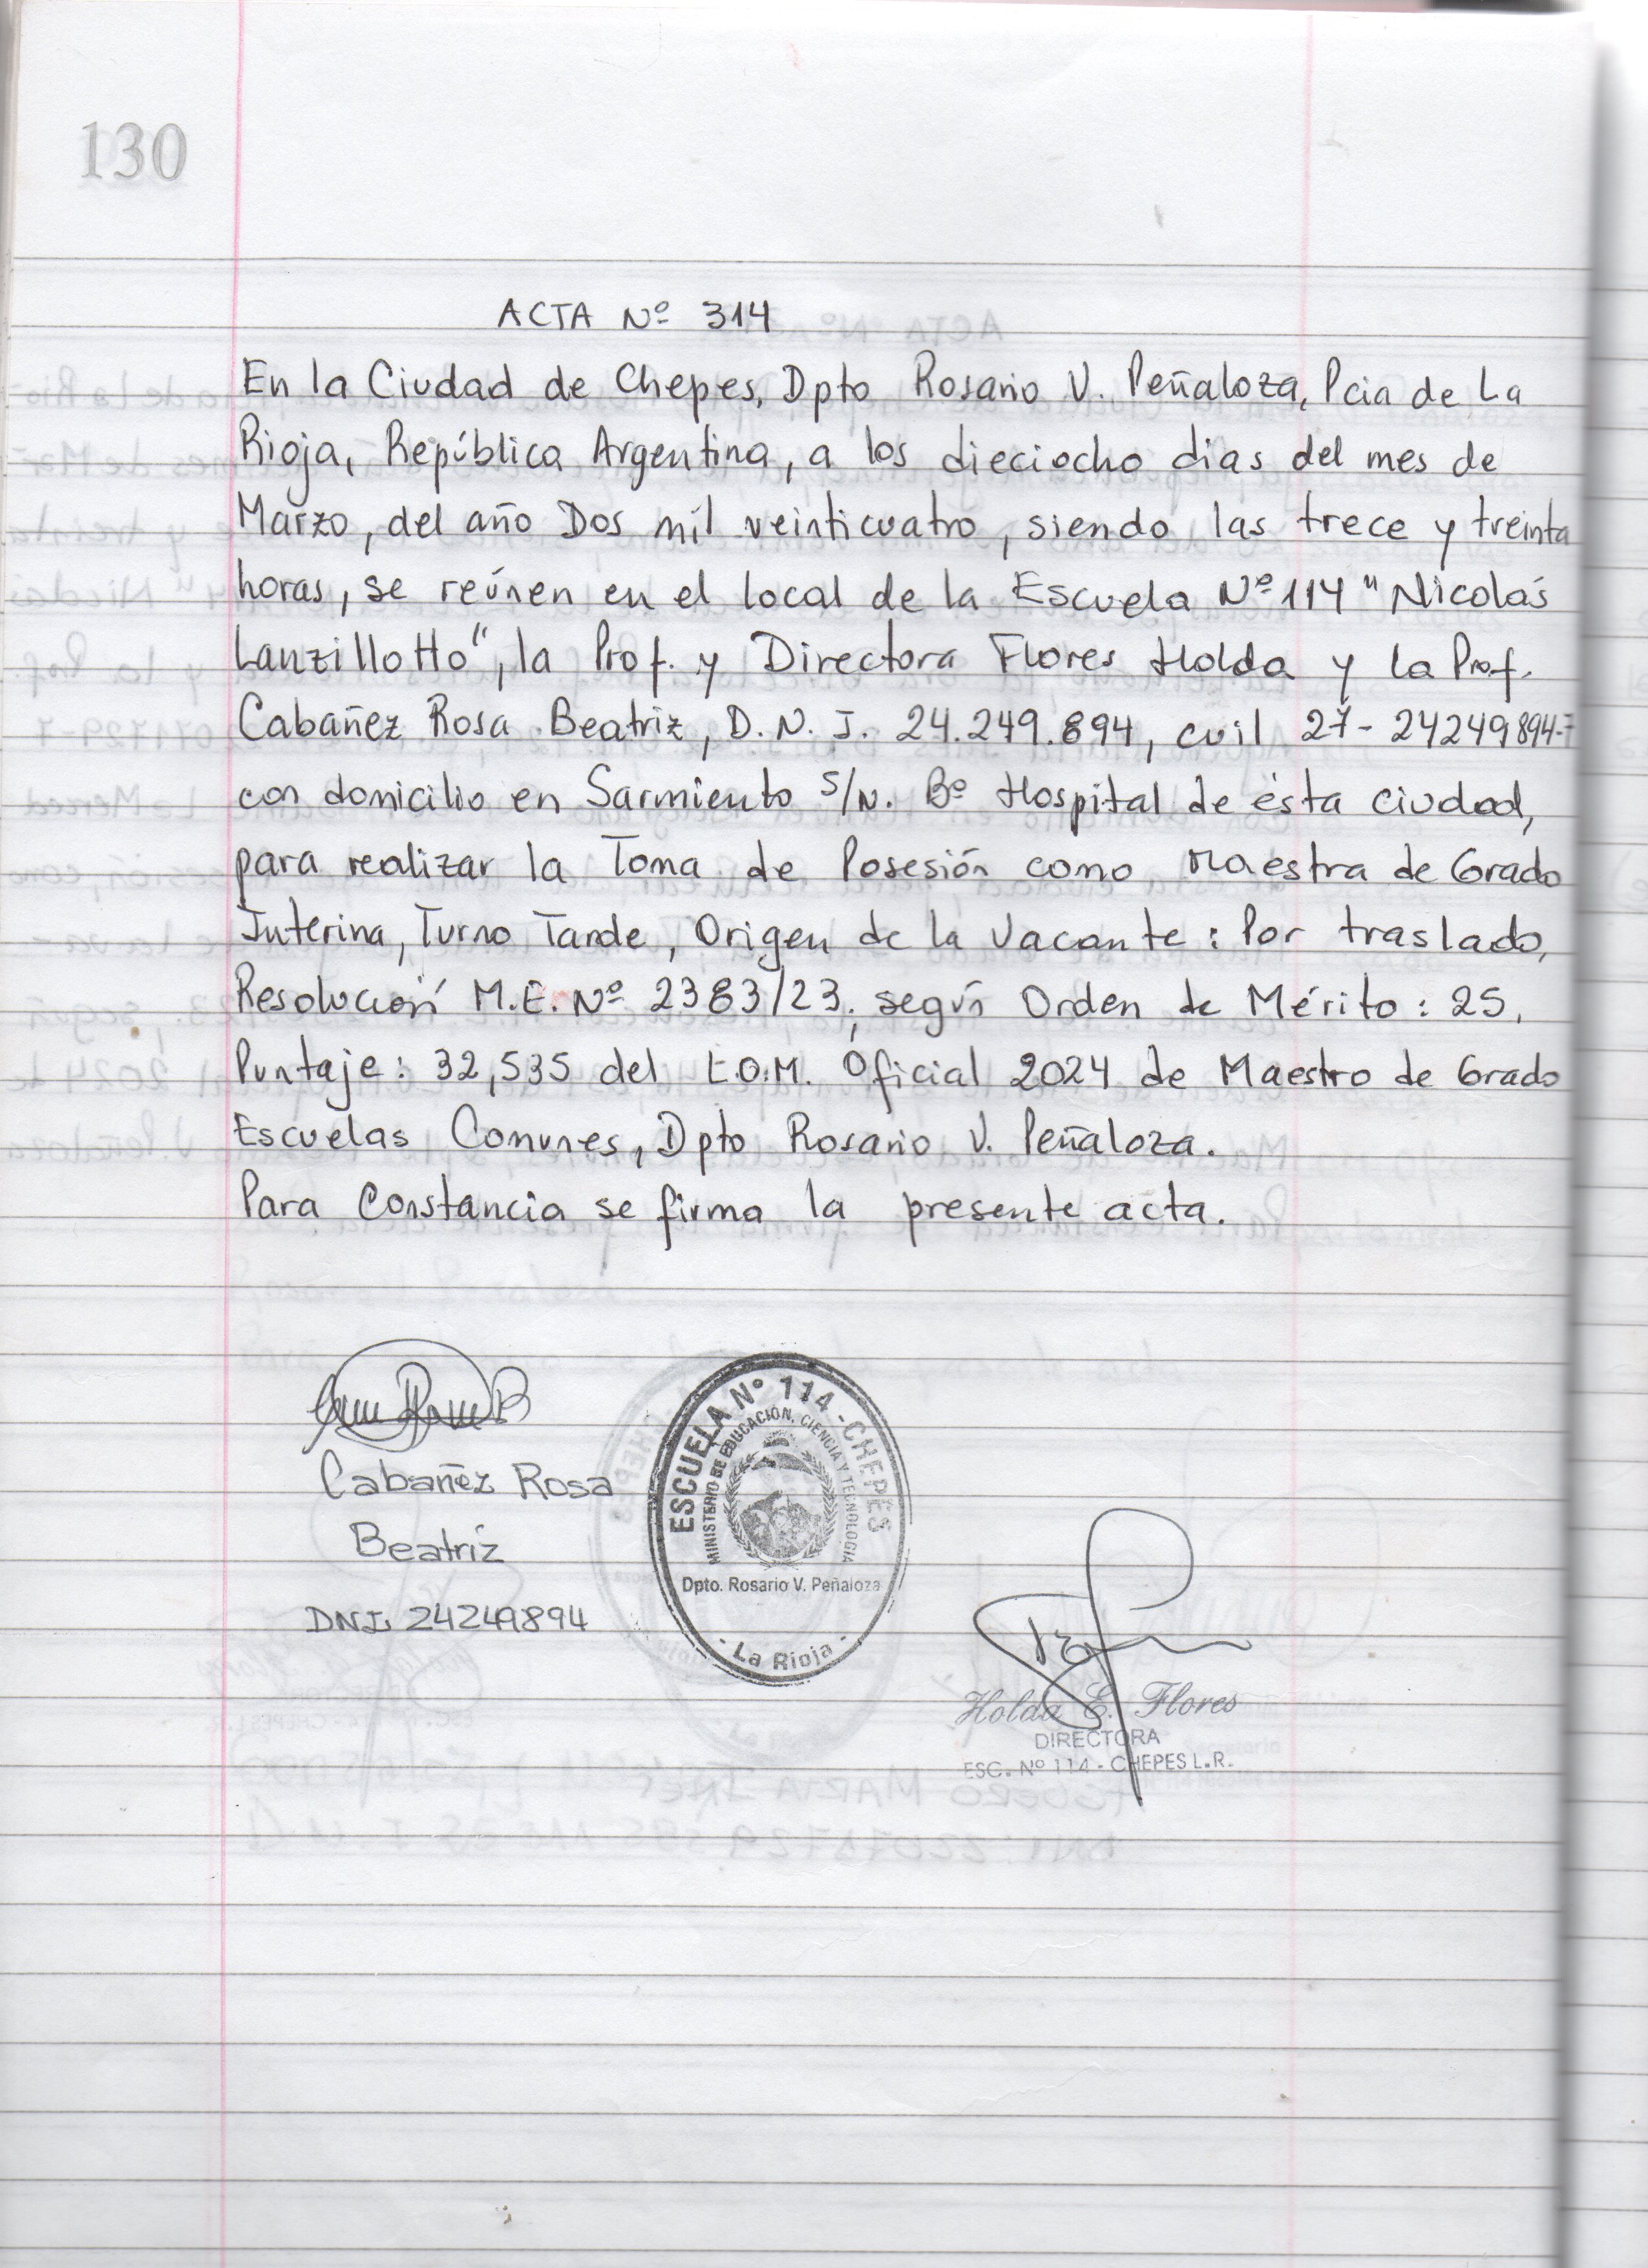 130
ACTA Nº 314
En la Ciudad de Chepes, Dpto Rosario V. Peñaloza, Pcia de La
Rioja, República Argentina, a los dieciocho dias del mes de
Marzo, del año Dos mil veinticuatro, siendo las trece y treinta
horas, se reúnen en el local de la Escuela Nº 114 "Nicolás
Lanzillotto", la Prof. y Directora Flores Holda y la Prof.
Cabañez Rosa Beatriz, D.N.I. 24.249.894, cuil 27-24249894-7
con domicilio en Sarmiento S/N. Bº Hospital de ésta ciudad,
para realizar la Toma de Posesión como Maestra de Grado
Interina, Turno Tarde, Origen de la Vacante: Por traslado,
Resolución M.E. Nº 2383/23, según Orden de Mérito: 25,
Puntaje: 32,535 del L.O.M. Oficial 2024 de Maestro de Grado
Escuelas Comunes, Dpto Rosario V. Peñaloza.
Para Constancia se firma la presente acta.
Cabañez Rosa
Beatriz
DNI 24249894
ESCUELA Nº 114 - CHEPES
MINISTERIO DE EDUCACIÓN, CIENCIA Y TECNOLOGIA
Dpto. Rosario V. Peñaloza
- La Rioja -
Holda E. Flores
DIRECTORA
ESC. Nº 114 - CHEPES L.R.